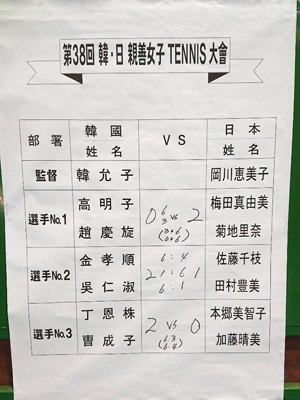 第38回 韓·日 親善女子 TENNIS 大會
部署 韓國 姓名 VS 日本 姓名
監督 韓允子 岡川恵美子
選手No.1 高明子 梅田真由美
趙慶旋 0 vs 2 菊地里奈
選手No.2 金孝順 6:4 佐藤千枝
吳仁淑 6:1 田村豊美
選手No.3 丁恩株 2 vs 0 本郷美智子
曺成子 加藤晴美